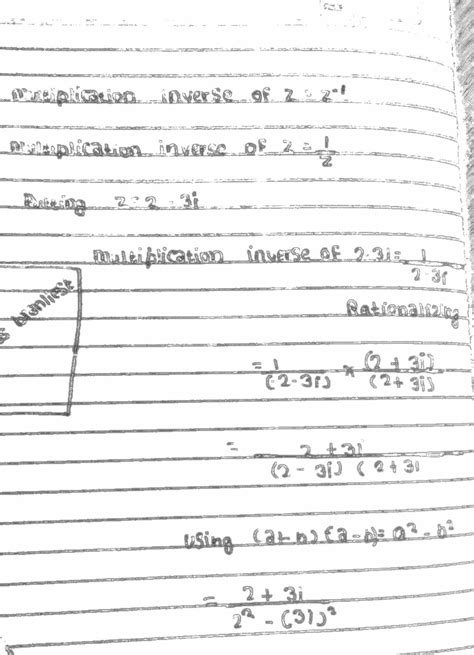 multiplication inverse of z = z⁻¹
multiplication inverse of z = 1/z
Putting z = 2 - 3i
multiplication inverse of 2-3i = 1/2-3i
Rationalizing
= 1/(2-3i) × (2+3i)/(2+3i)
= 2+3i/(2-3i)(2+3i
using (a+b)(a-b) = a² - b²
= 2+3i/2² - (3i)²